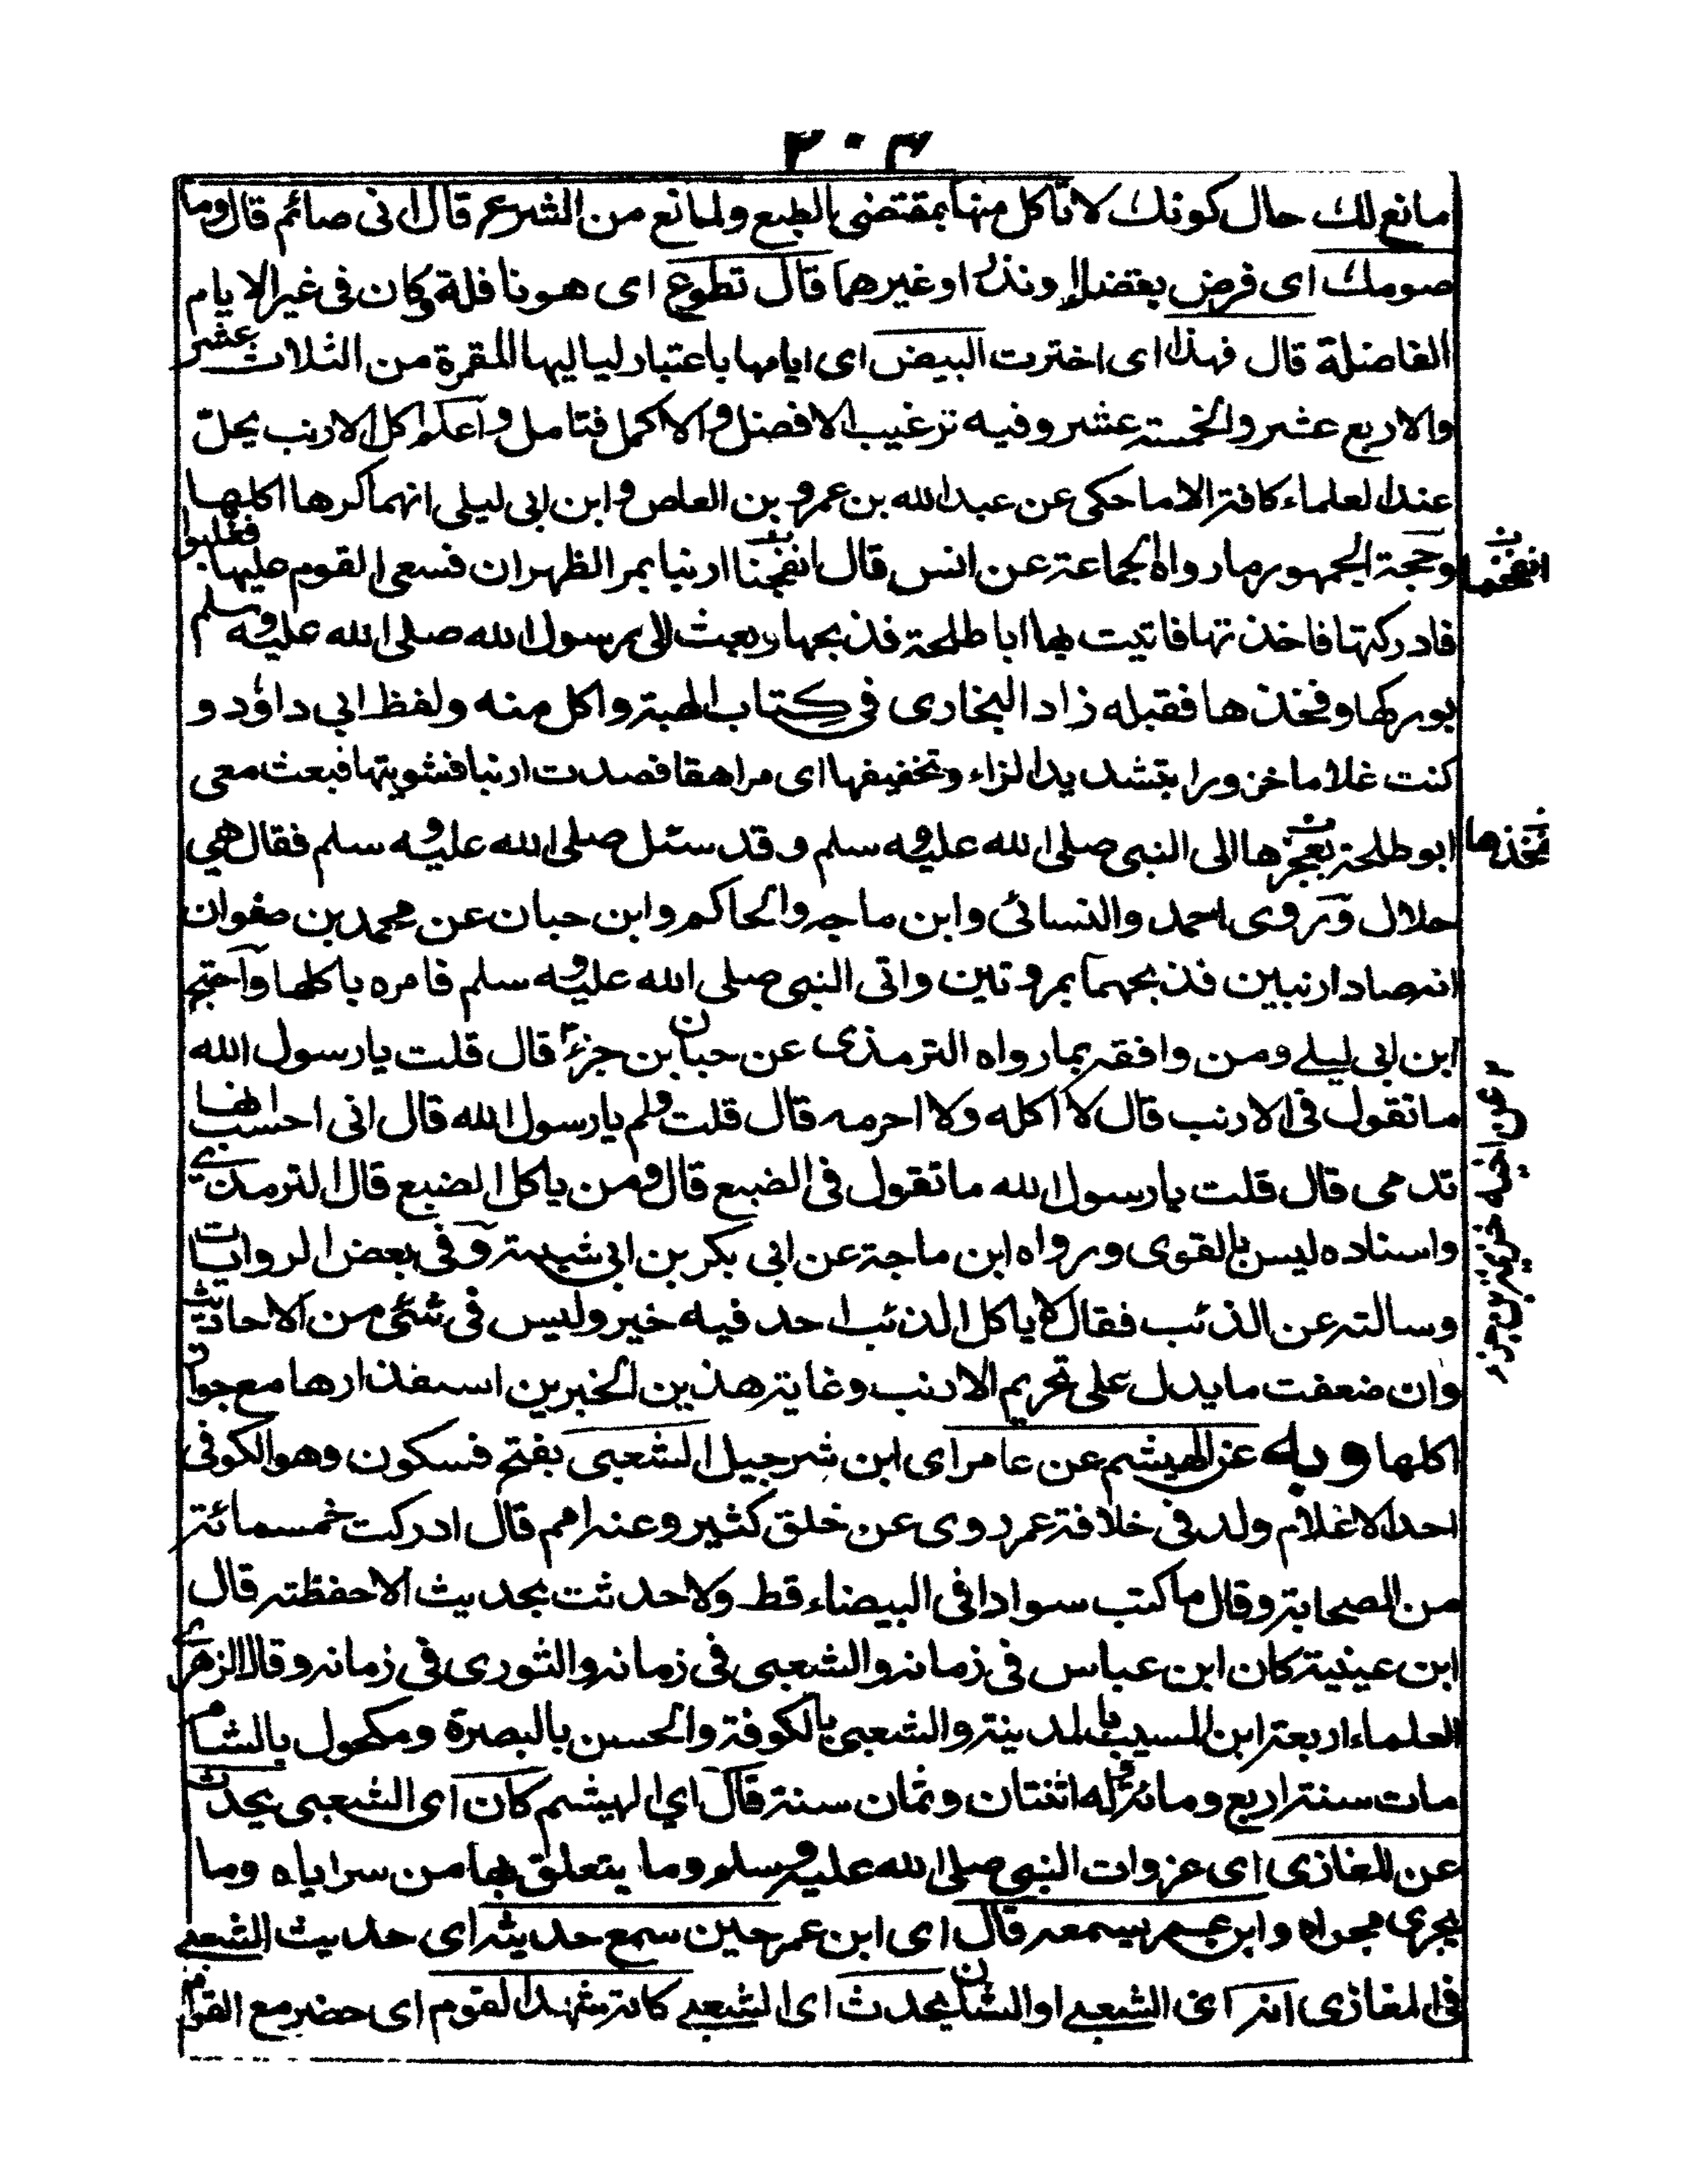 ٢٠٣
مانع لك حال كونك لا تأكل منها بمقتضى الطبع ولمانع من الشرع قال انى صائم قال وما
صومك اى فرض بقضاء ونذر اوغيرهما قال تطوع اى هونافلة وكان فى غير الايام
الفاضلة قال فهذا اى اخترت البيض اى ايامها باعتبار لياليها المقمرة من الثلاث عشر
والاربع عشر والخمسة عشر وفيه ترغيب الافضل والاكمل فتامل واعلم اكل الارنب يحل
عند العلماء كافة الاماحكى عن عبدالله بن عمرو بن العاص وابن ابى ليلى انهما كرها اكلها
وحجة الجمهور مارواه الجماعة عن انس قال انفجنا ارنبا بمر الظهران فسعى القوم عليها فغلبوا
فادركتها فاخذتها فاتيت بها ابا طلحة فذبحها وبعث الى رسول الله صلى الله عليه وسلم
بوركها وفخذها فقبله زاد البخارى فى كتاب الهبة واكل منه ولفظ ابى داؤد و
كنت غلاما خزورا بتشديد الزاء وتخفيفها اى مراهقا فصدت ارنبا فشويتها فبعث معى
ابوطلحة بعجزها الى النبى صلى الله عليه وسلم وقد سئل صلى الله عليه وسلم فقال هى
حلال وروى احمد والنسائى وابن ماجه والحاكم وابن حبان عن محمد بن صفوان
انه صاد ارنبين فذبحهما بمروتين واتى النبى صلى الله عليه وسلم فامره باكلها واحتج
ابن ابى ليلى ومن وافقه بمارواه الترمذى عن حبان بن جزء قال قلت يارسول الله
ماتقول فى الارنب قال لا اكله ولا احرمه قال قلت ولم يارسول الله قال انى احسب انها
تدمى قال قلت يارسول الله ماتقول فى الضبع قال ومن ياكل الضبع قال الترمذى
واسناده ليس بالقوى ورواه ابن ماجة عن ابى بكر بن ابى شيبة وفى بعض الروايات
وسالته عن الذئب فقال لا ياكل الذئب احد فيه خير وليس فى شئى من الاحاديث
وان ضعفت مايدل على تحريم الارنب وغاية هذين الخبرين استقذارها مع جواز
اكلها وبه عن الهيثم عن عامر اى ابن شرجيل الشعبى بفتح فسكون وهو الكوفى
احد الاعلام ولد فى خلافة عمر روى عن خلق كثير وعنه امم قال ادركت خمسمائة
من الصحابة وقال ماكتب سوادا فى البيضاء قط ولاحدثت بحديث الاحفظته قال
ابن عيينة كان ابن عباس فى زمانه والشعبى فى زمانه والثورى فى زمانه وقال الزهرى
العلماء اربعة ابن المسيب بالمدينة والشعبى بالكوفة والحسن بالبصرة ومكحول بالشام
مات سنة اربع ومائة وله اثنتان وثمان سنة قال اى الهيثم كان اى الشعبى يحدث
عن المغازى اى غزوات النبى صلى الله عليه وسلم وما يتعلق بها من سراياه وما
يجرى مجراه وابن عمر يسمعه قال اى ابن عمر حين سمع حديثه اى حديث الشعبى
فى المغازى انه اى الشعبى او الشان يحدث اى الشعبى كانه شهد القوم اى حضر مع القوم
انفجنا
فخذها
عن اخيه خزيمة بن جزء